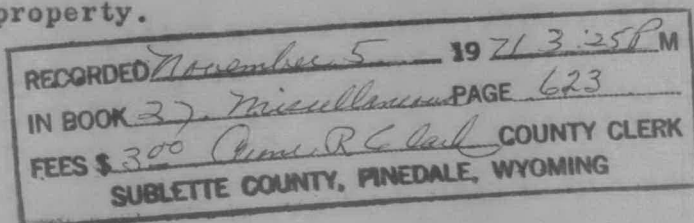 property.
RECORDED November 5 19 71 3:25P M
IN BOOK 27 Miscellaneous PAGE 623
FEES $ 3.00 R Clark COUNTY CLERK
SUBLETTE COUNTY, PINEDALE, WYOMING